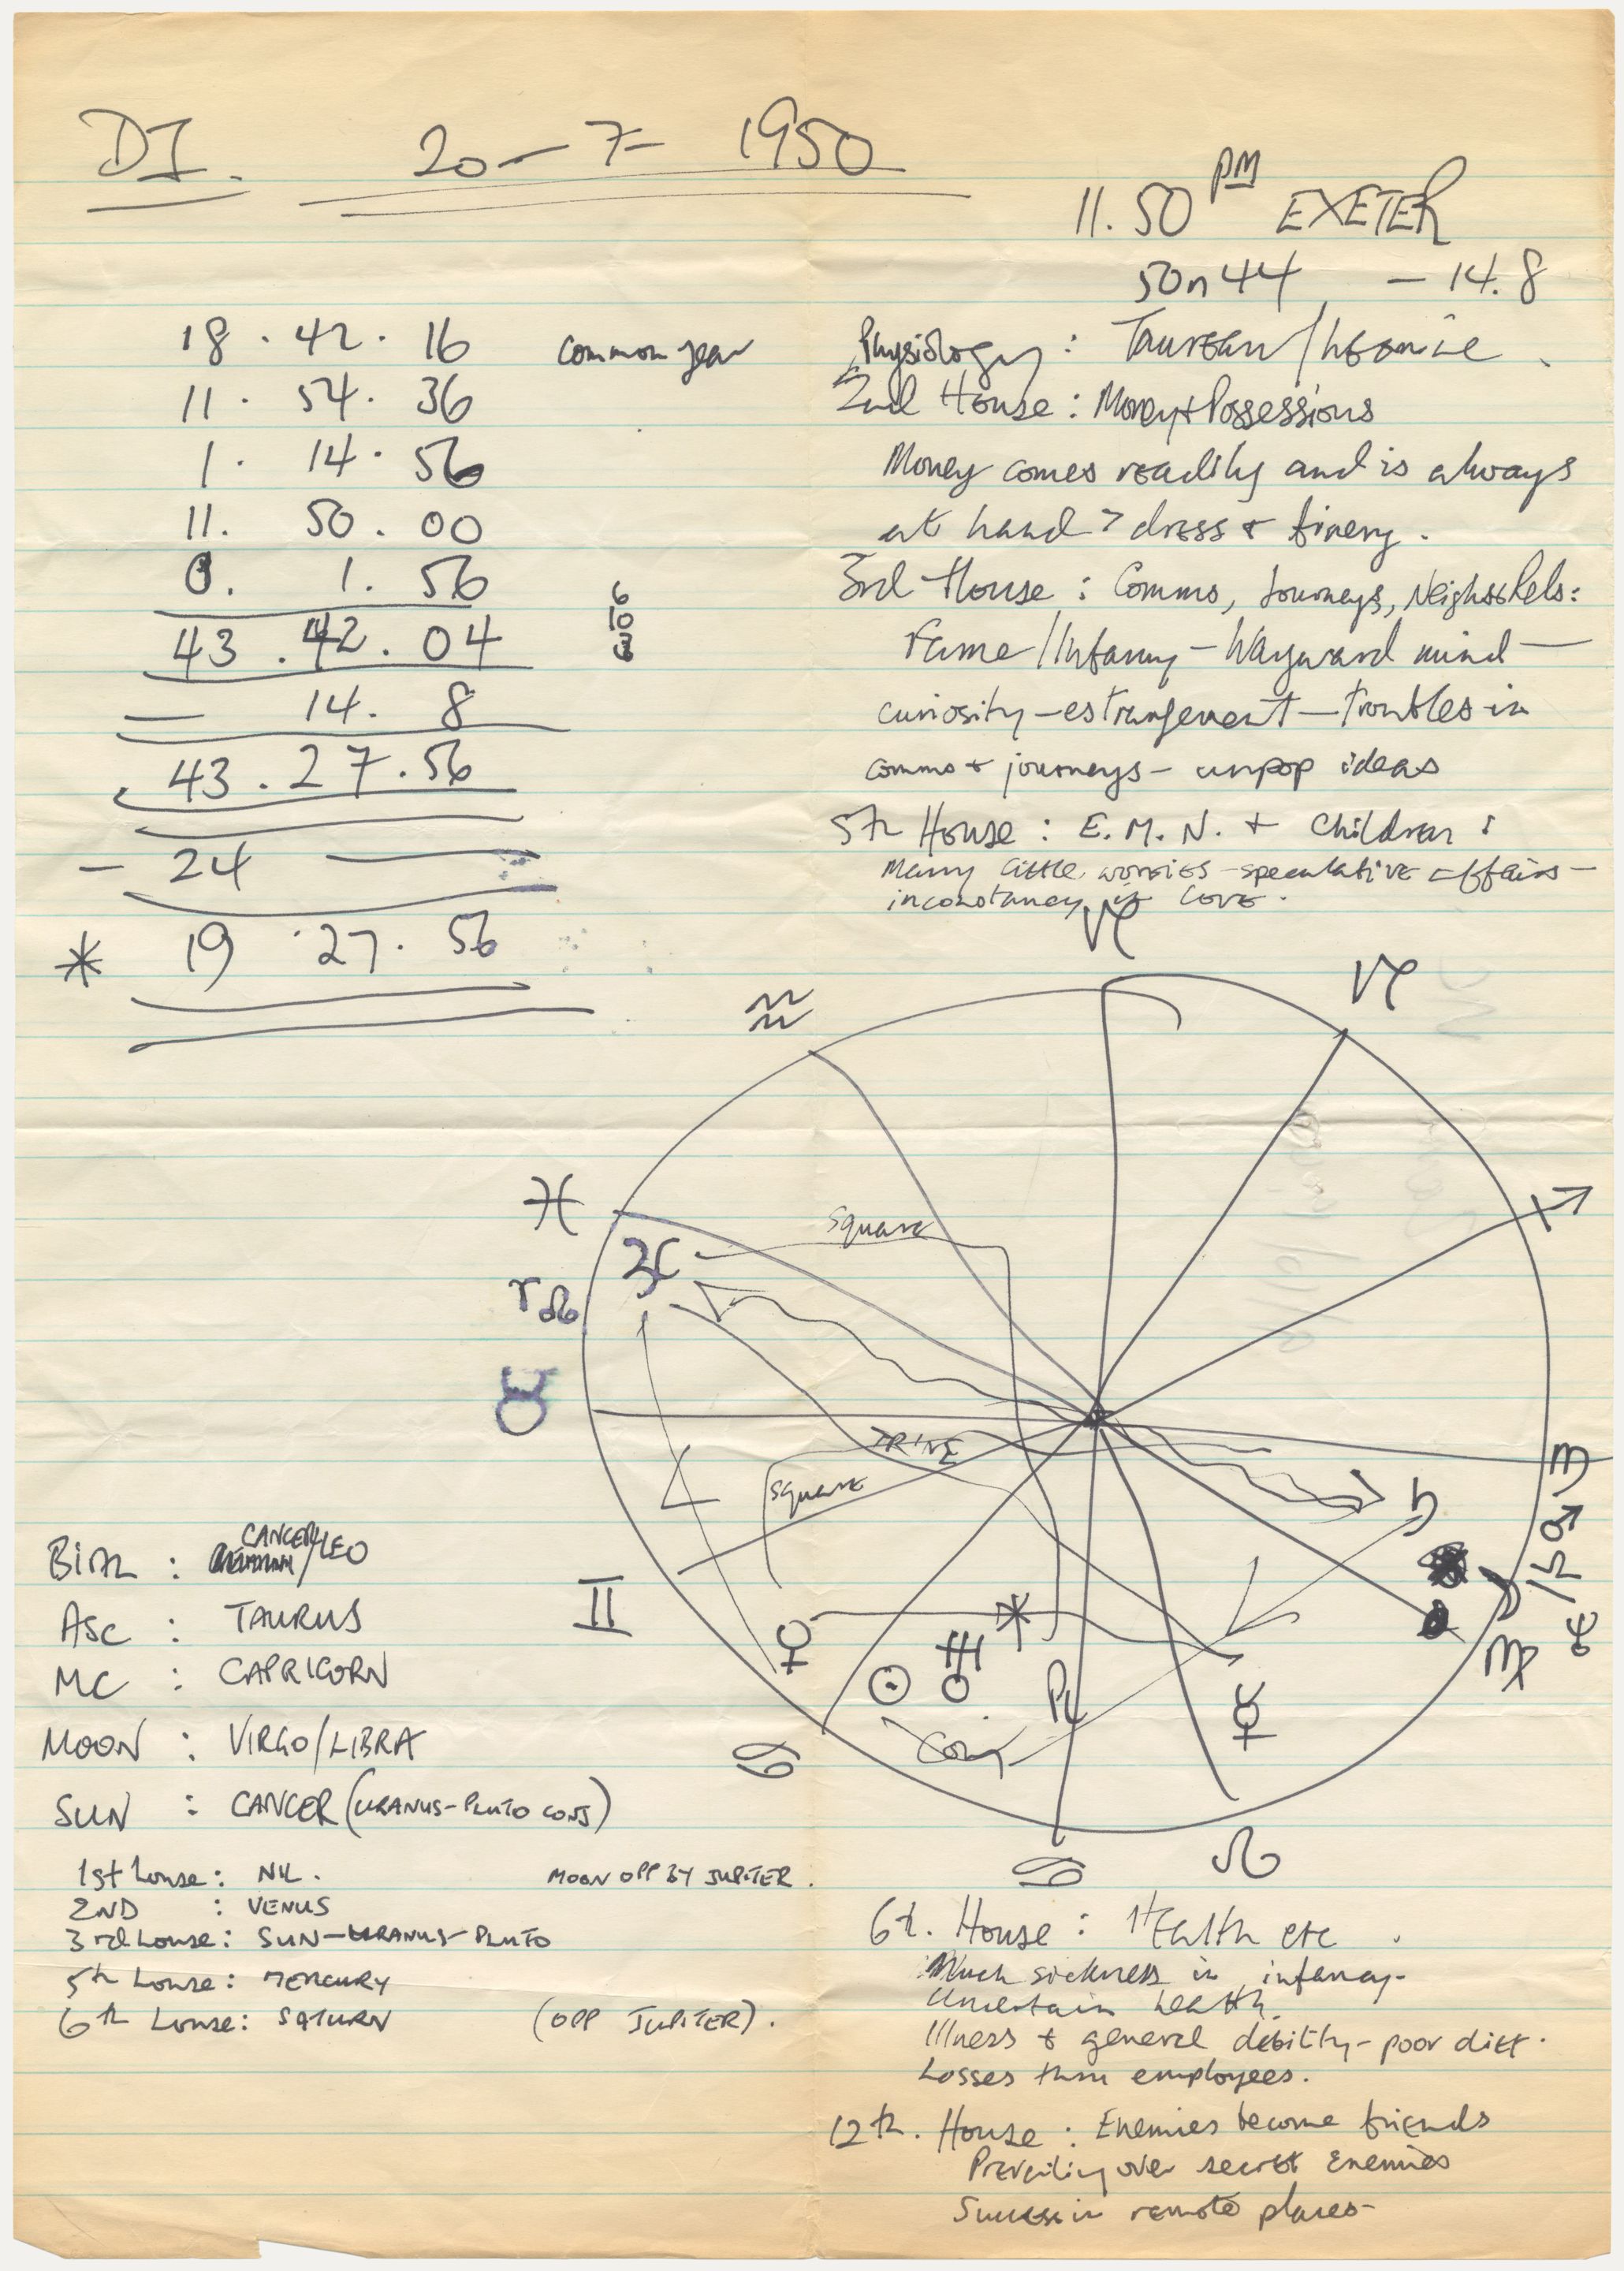 DI. 20-7-1950
11.50 PM EXETER
50n44 - 14.8
18 . 42 . 16 common year
11 . 54 . 36
1 . 14 . 56
11. 50 . 00
0. 1. 56
43 . 42 . 04
— 14. 8
43 . 27 . 56
- 24
* 19 . 27 . 56
Physiology : Taurean /
2nd House : Money + Possessions
Money comes readily and is always
at hand > dress + finery .
3rd House : Comms, Journeys, Neighs & Rels:
Fame / Infamy - Wayward mind —
curiosity - estrangement - troubles in
comms + journeys - unpop ideas
5th House : E. M. N. + Children :
Many little worries - speculative affairs -
inconstancy in love .
♑
♑
♒
♐
♓
♃
square
♈ ♎
♉
TRINE
square
♄
♏
♂
♎
♆
♍
♊
♀
☉
♅
*
PL
☿
conj
♋
♋
♌
Birth : CANCER/LEO
ASC : TAURUS
MC : CAPRICORN
MOON : VIRGO/LIBRA
SUN : CANCER (URANUS-PLUTO CONJ)
1st house : NIL. MOON OPP BY JUPITER .
2ND : VENUS
3rd house : SUN-URANUS-PLUTO
5th house : MERCURY
6th house : SATURN (OPP JUPITER) .
6th. House : Health etc .
Much sickness in infancy-
uncertain health.
Illness & general debility - poor diet .
Losses thru employees.
12th. House : Enemies become friends
Prevailing over secret enemies
Success in remote places-